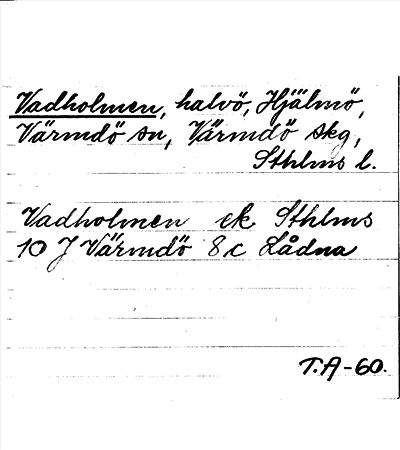 Vadholmen, halvö, Hjälmö,
Värmdö sn, Värmdö skg,
Sthlms l.
Vadholmen ek Sthlms
10 J Värmdö 8 c Lådna
T.A-60.